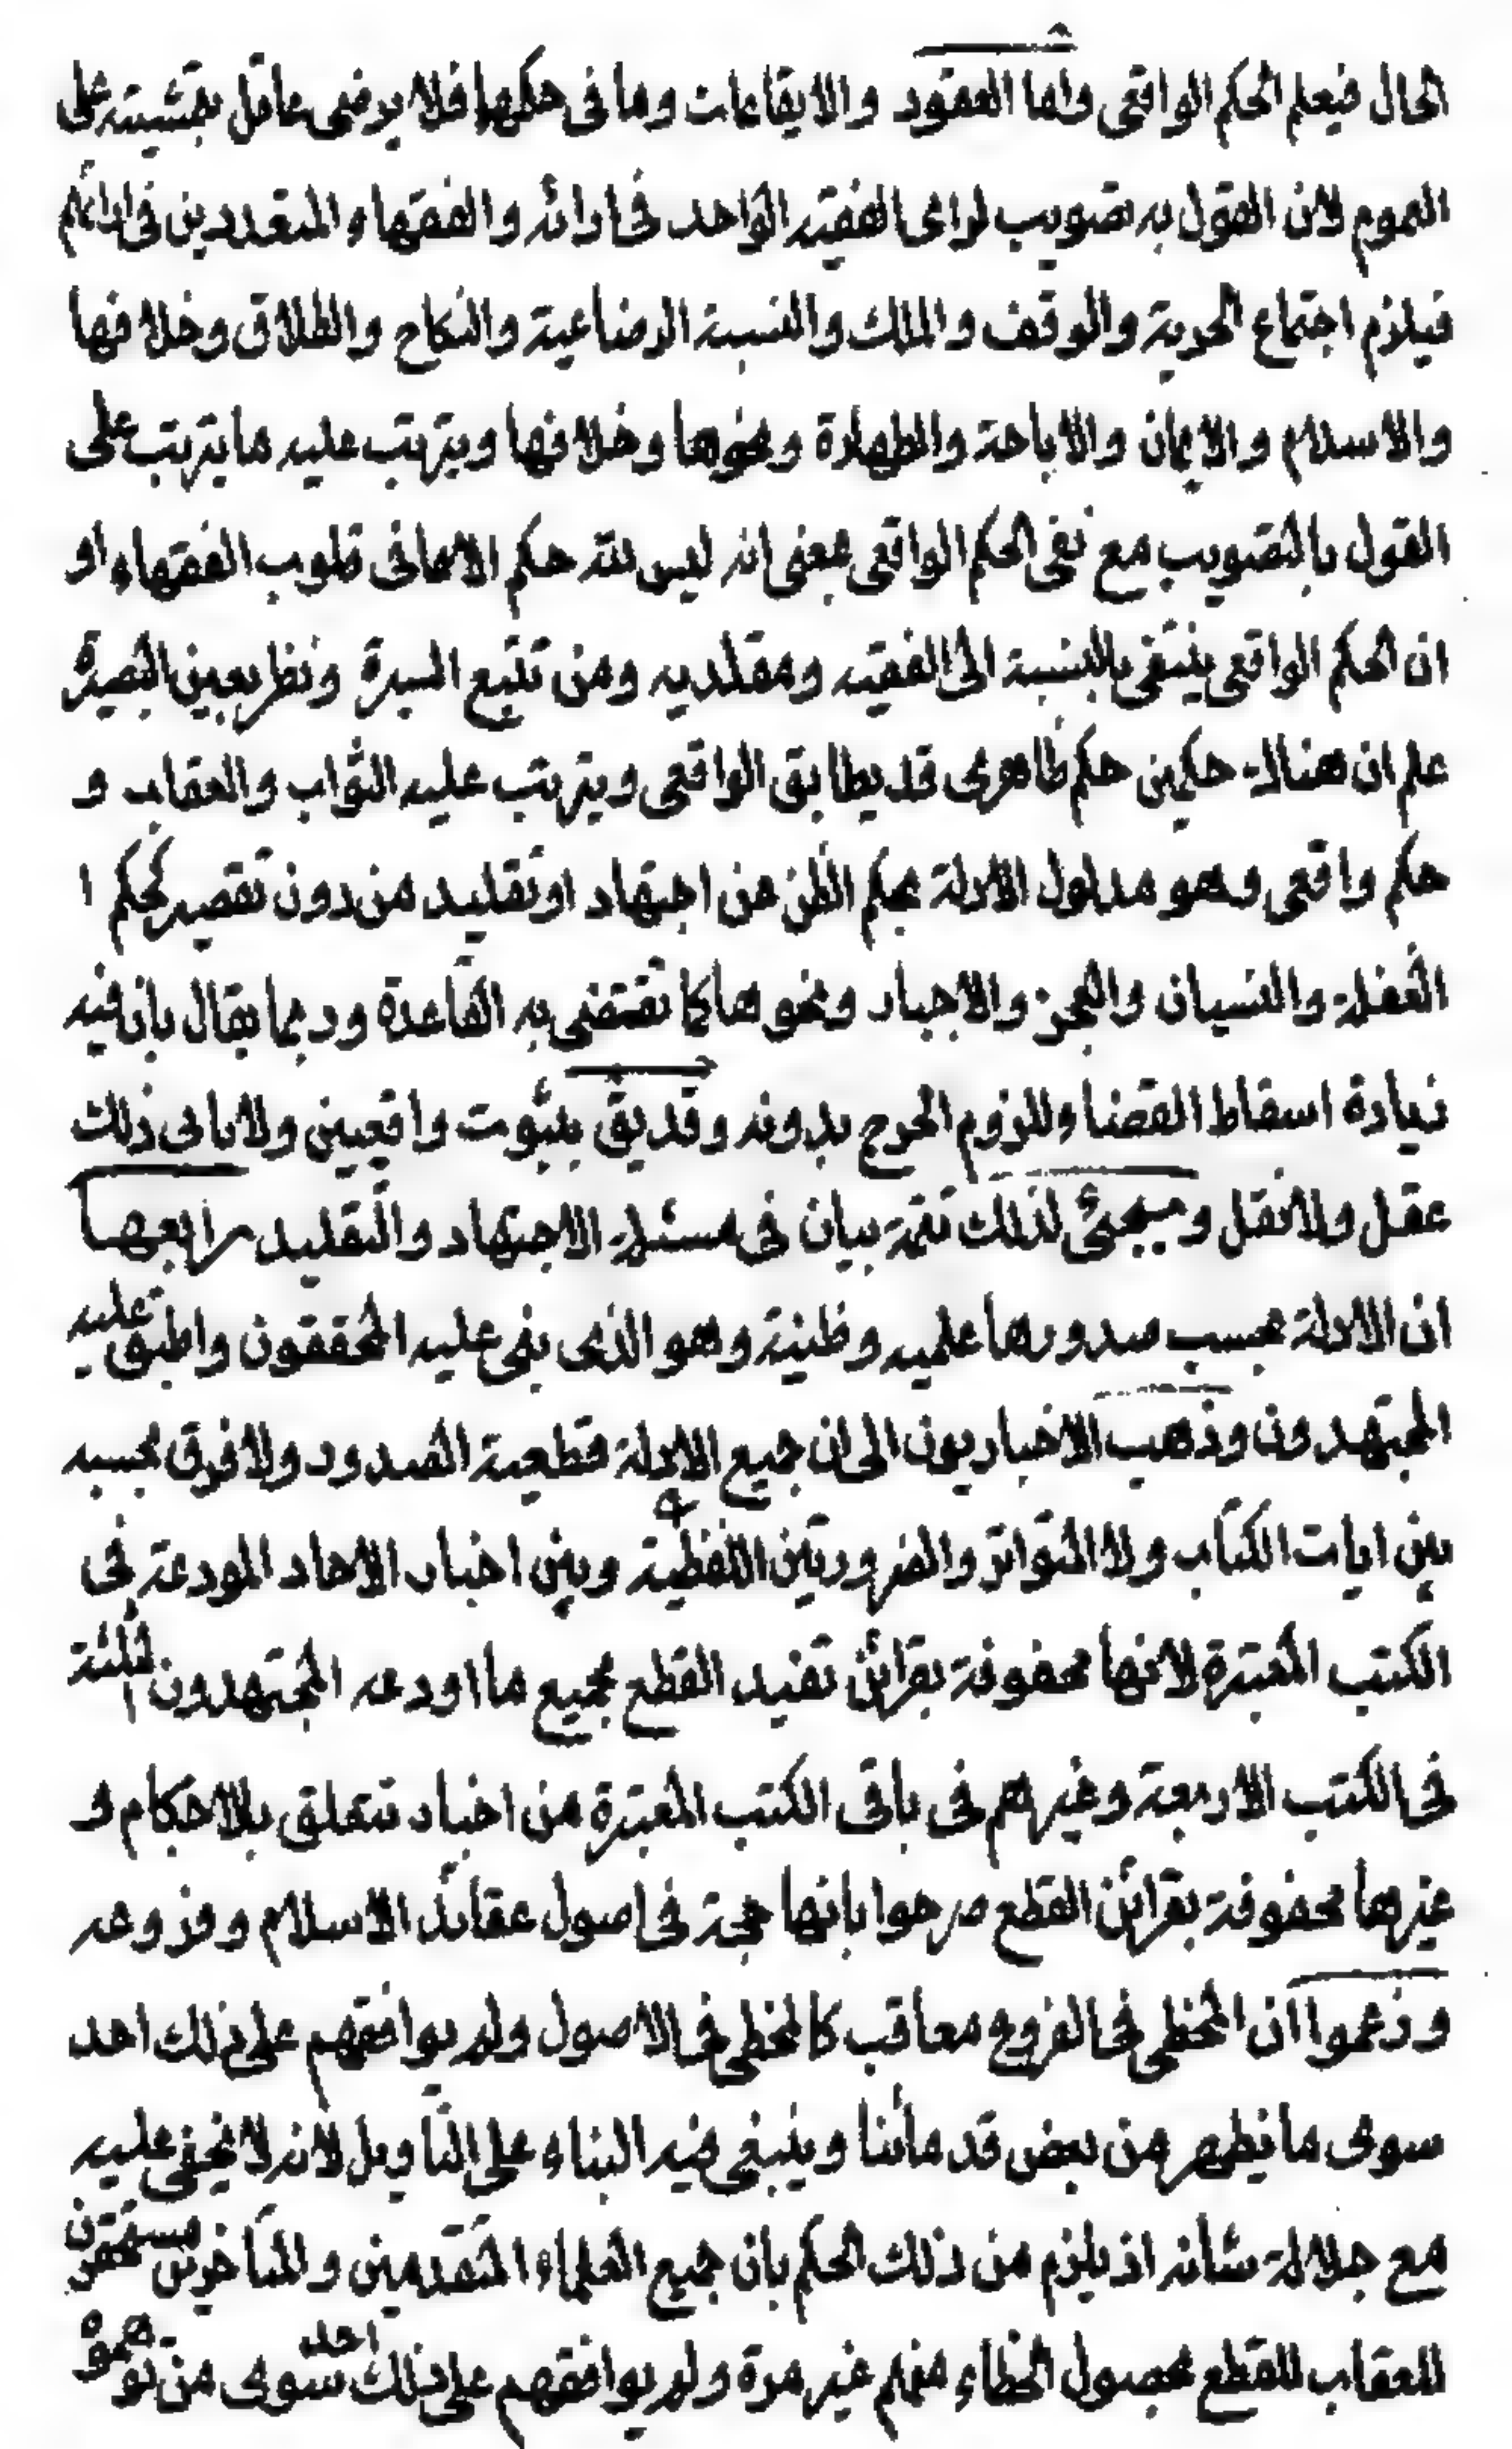 الحال فيعلم الحكم الواقعى واما العقود والايقاعات وما فى حكمها فلا يرضى عاقل بتمشيته على
العموم لان القول به تصويب لراى الفقيه الواحد فى ارائه والفقهاء المتعددين فى ارائهم
فيلزم اجتماع الحرية والوقف والملك والنسبة الرضاعية والنكاح والطلاق وخلافها
والاسلام والايمان والاباحة والطهارة ونحوها وخلافها ويترتب عليه ما يترتب على
القول بالتصويب مع نفى الحكم الواقعى بمعنى انه ليس لله حكم الا ما فى قلوب الفقهاء او
ان الحكم الواقعى ينتفى بالنسبة الى الفقيه ومقلديه ومن تتبع السيرة ونظر بعين البصيرة
علم ان هناك حكمين حكم ظاهرى قد يطابق الواقعى ويترتب عليه الثواب والعقاب و
حكم واقعى وهو مدلول الادلة بحكم الظن من اجتهاد او تقليد من دون تقصير كحكم ا
الغفلة والنسيان والعجز والاجبار ونحوها كما تقتضى به القاعدة وربما يقال بان فيه
زيادة اسقاط القضاء وللزوم الحرج بدونه وقد يق بثبوت واقعيين ولا يابى ذلك
عقل ولا نقل وسيجئ لذلك تتمة بيان فى مسئلة الاجتهاد والتقليد رابعها
ان الادلة بحسب صدورها علميه وظنية وهو الذى بنى عليه المحققون واطبق عليه
المجتهدون وذهب الاخباريون الى ان جميع الادلة قطعية الصدور ولا فرق بحسبه
بين ايات الكتاب ولا المتواتر والضروريتين اللفظية وبين اخبار الاحاد المودعة فى
الكتب المعتبرة لانها محفوفة بقرائن تفيد القطع بجميع ما اودعه المجتهدون الثلثة
فى الكتب الاربعة وغيرهم فى باقى الكتب المعتبرة من اخبار تتعلق بالاحكام و
غيرها محفوفة بقرائن القطع صرحوا بانها حجة فى اصول عقائد الاسلام وفروعه
وزعموا ان المخطى فى الفروع معاقب كالمخطى فى الاصول ولم يوافقهم على ذلك احد
سوى ما يظهر من بعض قدمائنا وينبغى فيه البناء على التاويل لانه لا يخفى عليه
مع جلالة شانه اذ يلزم من ذلك الحكم بان جميع العلماء المتقدمين والمتاخرين مستحقون
للعقاب للقطع بحصول الخطاء منهم غير مرة ولم يوافقهم على ذلك احد سوى من